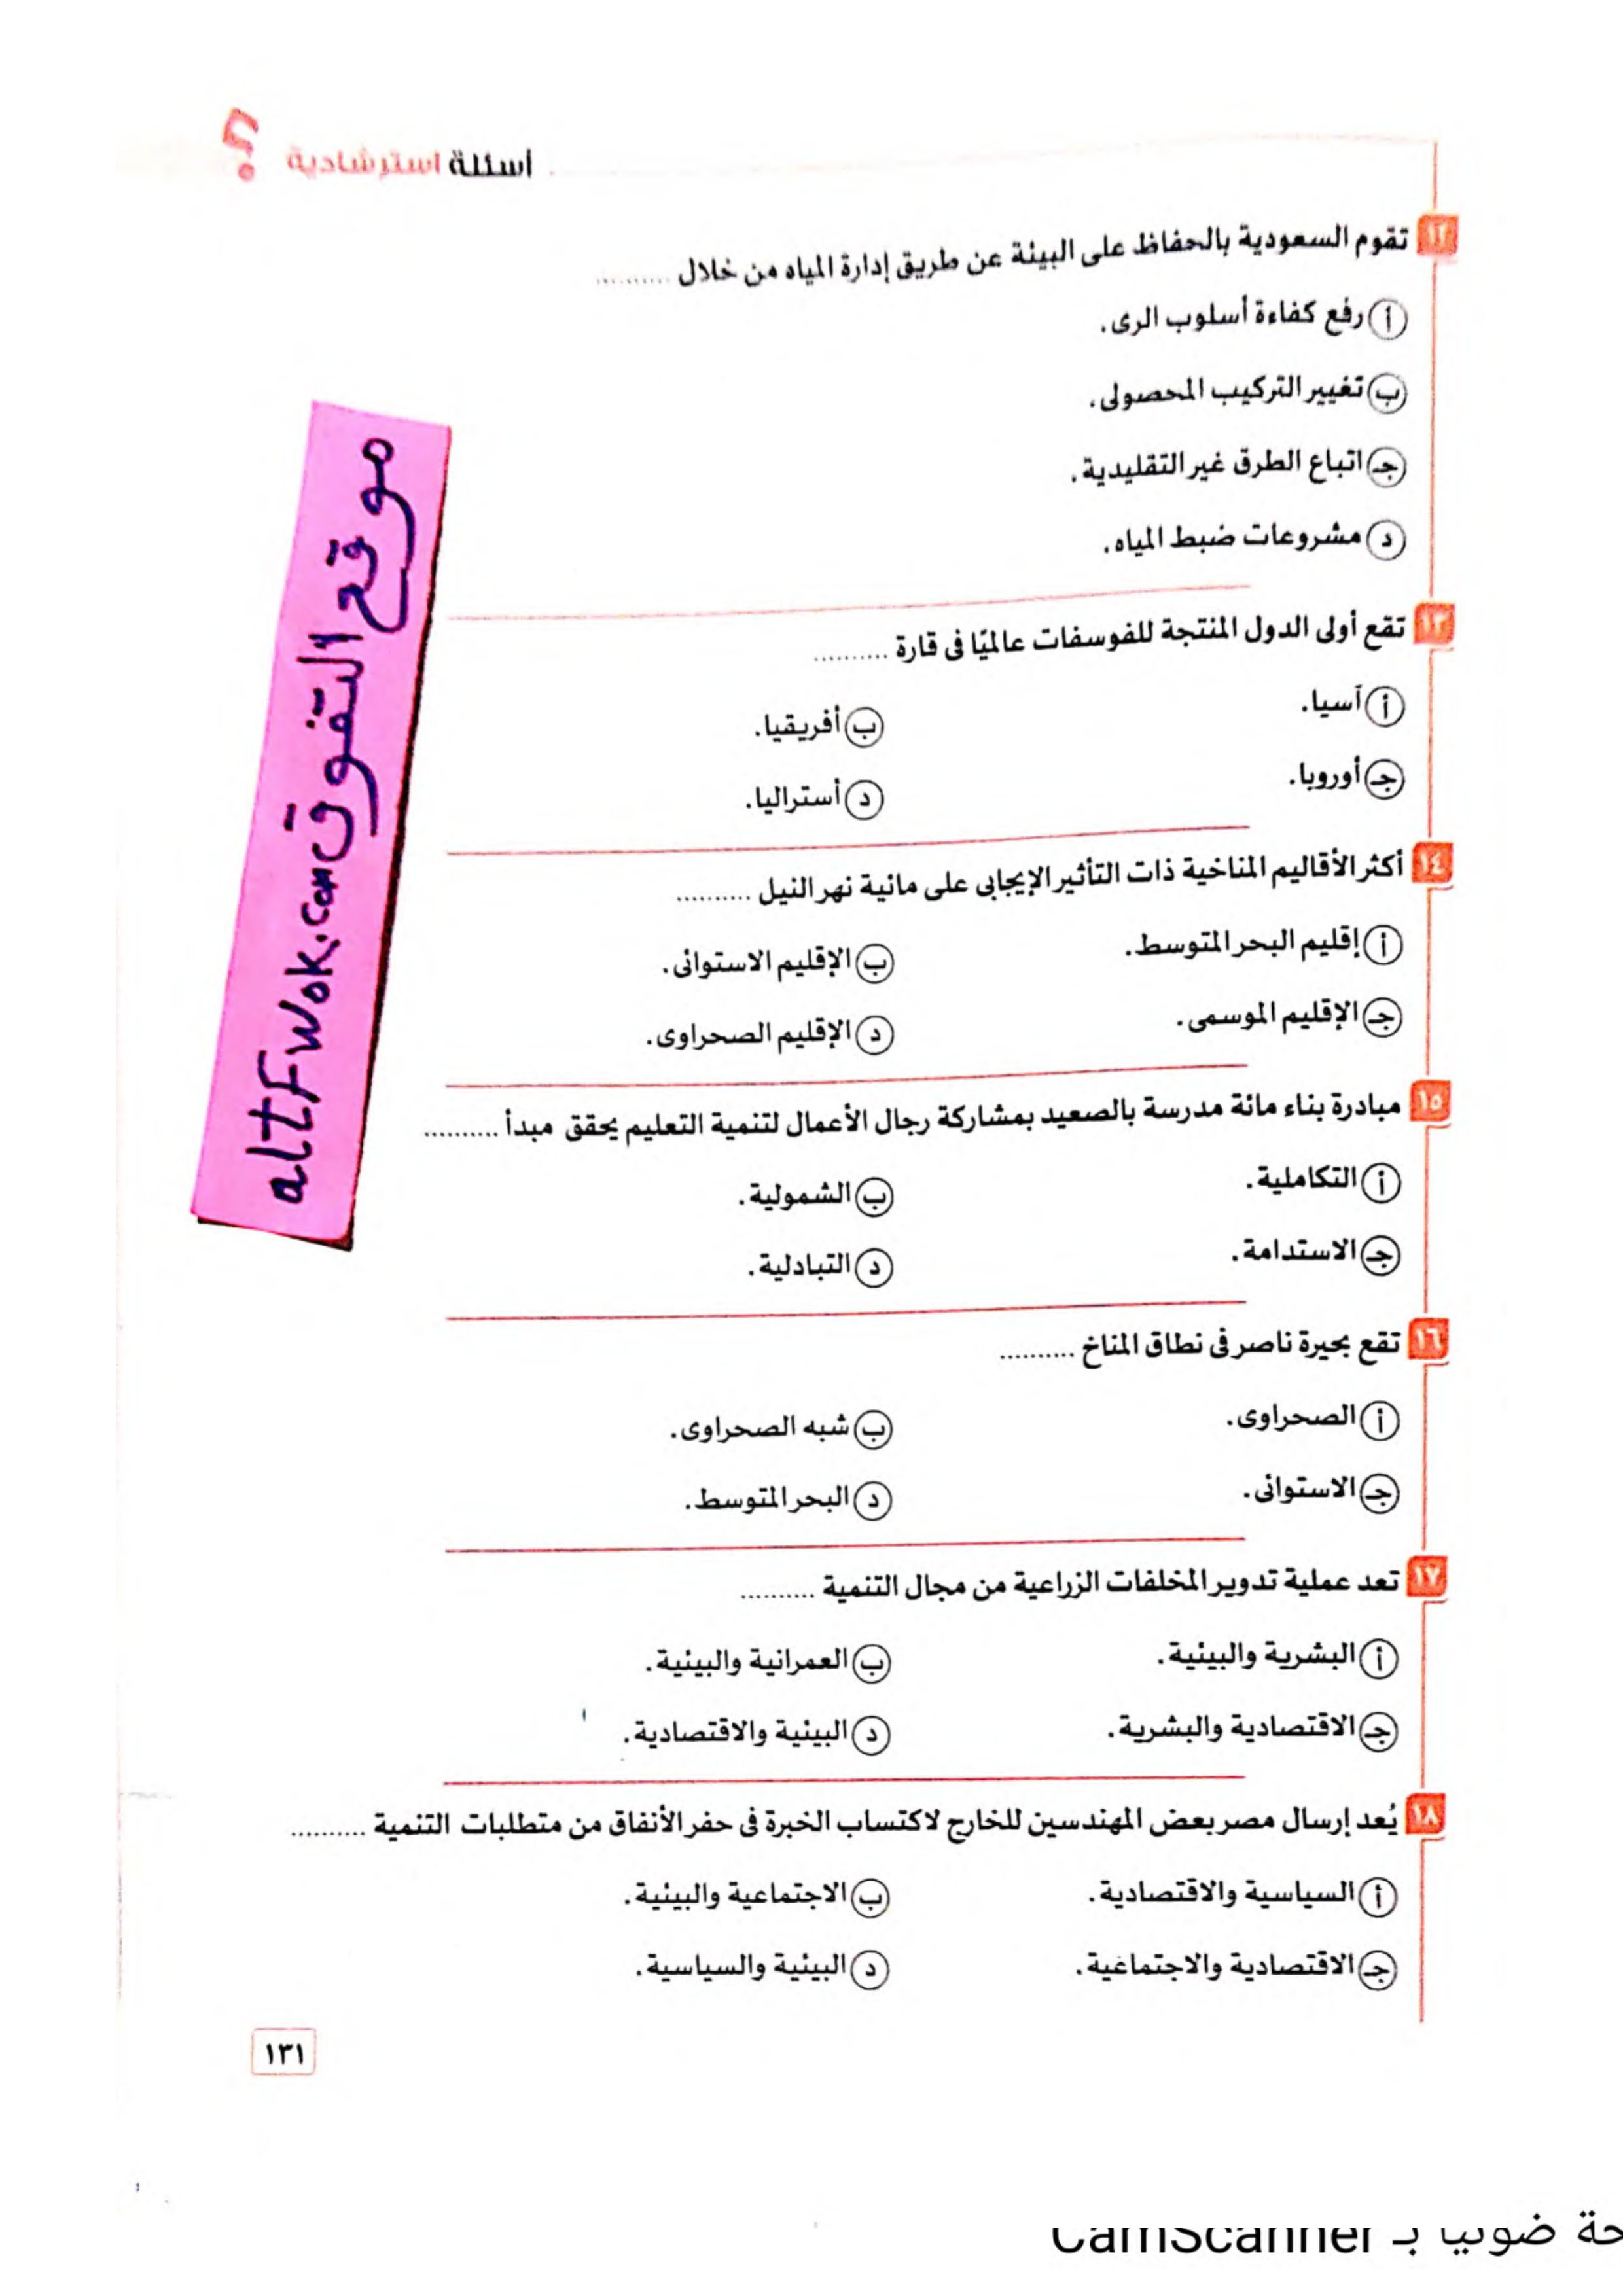 أسئلة استرشادية
١٢ تقوم السعودية بالحفاظ على البيئة عن طريق إدارة المياه من خلال ..........
أ رفع كفاءة أسلوب الرى.
ب تغيير التركيب المحصولى.
جـ اتباع الطرق غير التقليدية.
د مشروعات ضبط المياه.
١٣ تقع أولى الدول المنتجة للفوسفات عالميًا فى قارة ..........
أ آسيا.
ب أفريقيا.
جـ أوروبا.
د أستراليا.
١٤ أكثر الأقاليم المناخية ذات التأثير الإيجابى على مائية نهر النيل ..........
أ إقليم البحر المتوسط.
ب الإقليم الاستوائى.
جـ الإقليم الموسمى.
د الإقليم الصحراوى.
١٥ مبادرة بناء مائة مدرسة بالصعيد بمشاركة رجال الأعمال لتنمية التعليم يحقق مبدأ ..........
أ التكاملية.
ب الشمولية.
جـ الاستدامة.
د التبادلية.
١٦ تقع بحيرة ناصر فى نطاق المناخ ..........
أ الصحراوى.
ب شبه الصحراوى.
جـ الاستوائى.
د البحر المتوسط.
١٧ تعد عملية تدوير المخلفات الزراعية من مجال التنمية ..........
أ البشرية والبيئية.
ب العمرانية والبيئية.
جـ الاقتصادية والبشرية.
د البيئية والاقتصادية.
١٨ يُعد إرسال مصر بعض المهندسين للخارج لاكتساب الخبرة فى حفر الأنفاق من متطلبات التنمية ..........
أ السياسية والاقتصادية.
ب الاجتماعية والبيئية.
جـ الاقتصادية والاجتماعية.
د البيئية والسياسية.
١٣١
موقع التفوق altFwok.com
ضوئيا بـ CamScanner